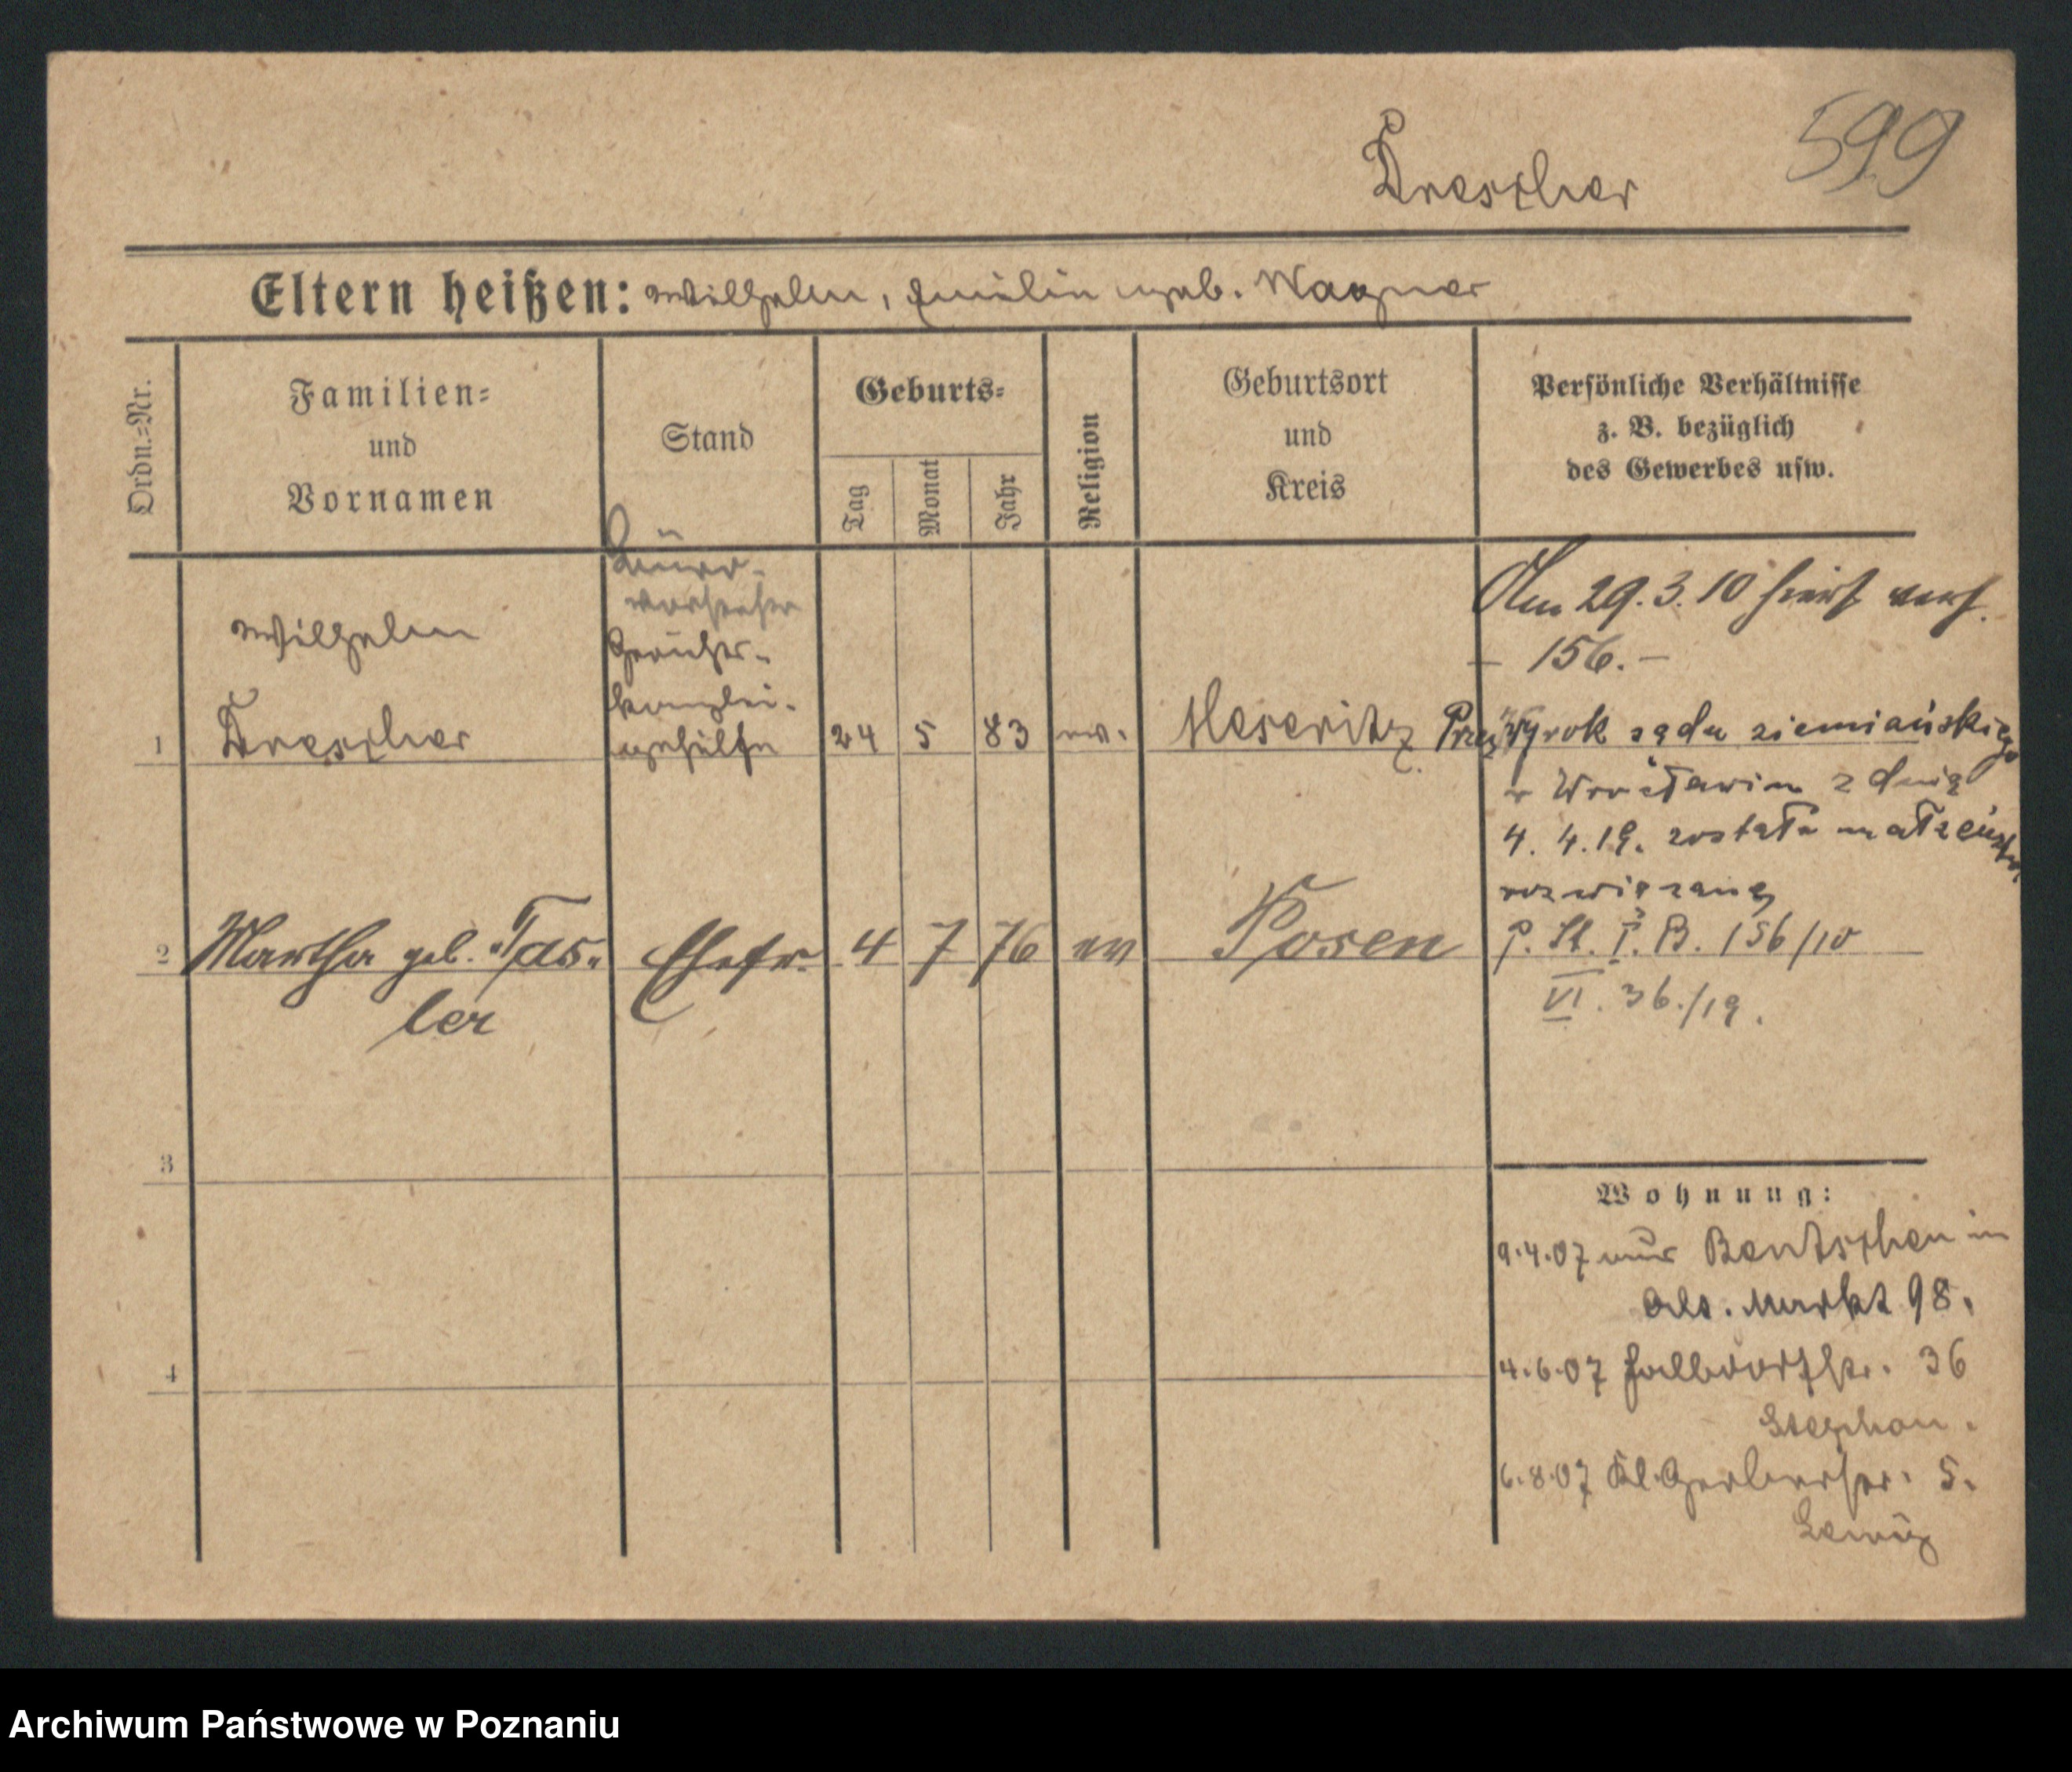 599
Drescher
Eltern heißen: Wilhelm, Emilie geb. Wagner
Ordn.-Nr.
Familien-
und
Vornamen
Stand
Geburts-
Tag
Monat
Jahr
Religion
Geburtsort
und
Kreis
Persönliche Verhältnisse
z. B. bezüglich
des Gewerbes usw.
Büro-
vorsteher
Gerichts-
kanzlei-
gehülfe
Wilhelm
Drescher
1
24 5 83 ev. Meseritz
Am 29.3.10 hier verh.
– 156. –
Przez Wyrok sądu ziemiańskiego
w Wrocławiu z dnia
4. 4. 19. zostało małżeństwo
rozwiązane
P. St. I. B. 156/10
VI. 36./19.
2 Martha geb. Tas-
ler
Ehefr. 4 7 76 ev Posen
3
4
Wohnung:
9.4.07 aus Bentschen in
Alt. Markt 98.
4.6.07 Halbdorfstr. 36
Stephan.
6.8.07 Kl. Gerberstr. 5.
Archiwum Państwowe w Poznaniu